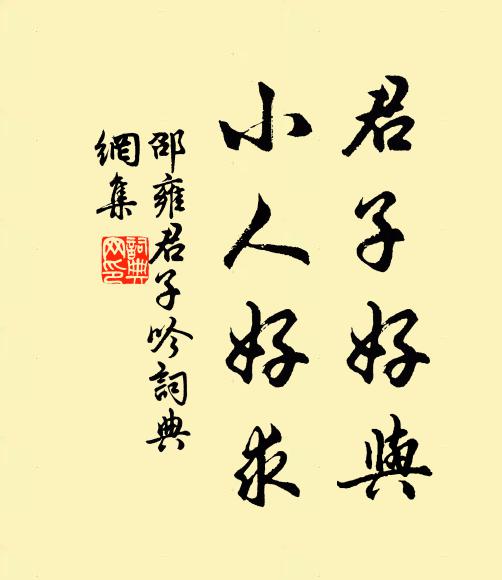 君子好與
小人好求
邵雍君子吟詞典
網集
詞典
网印